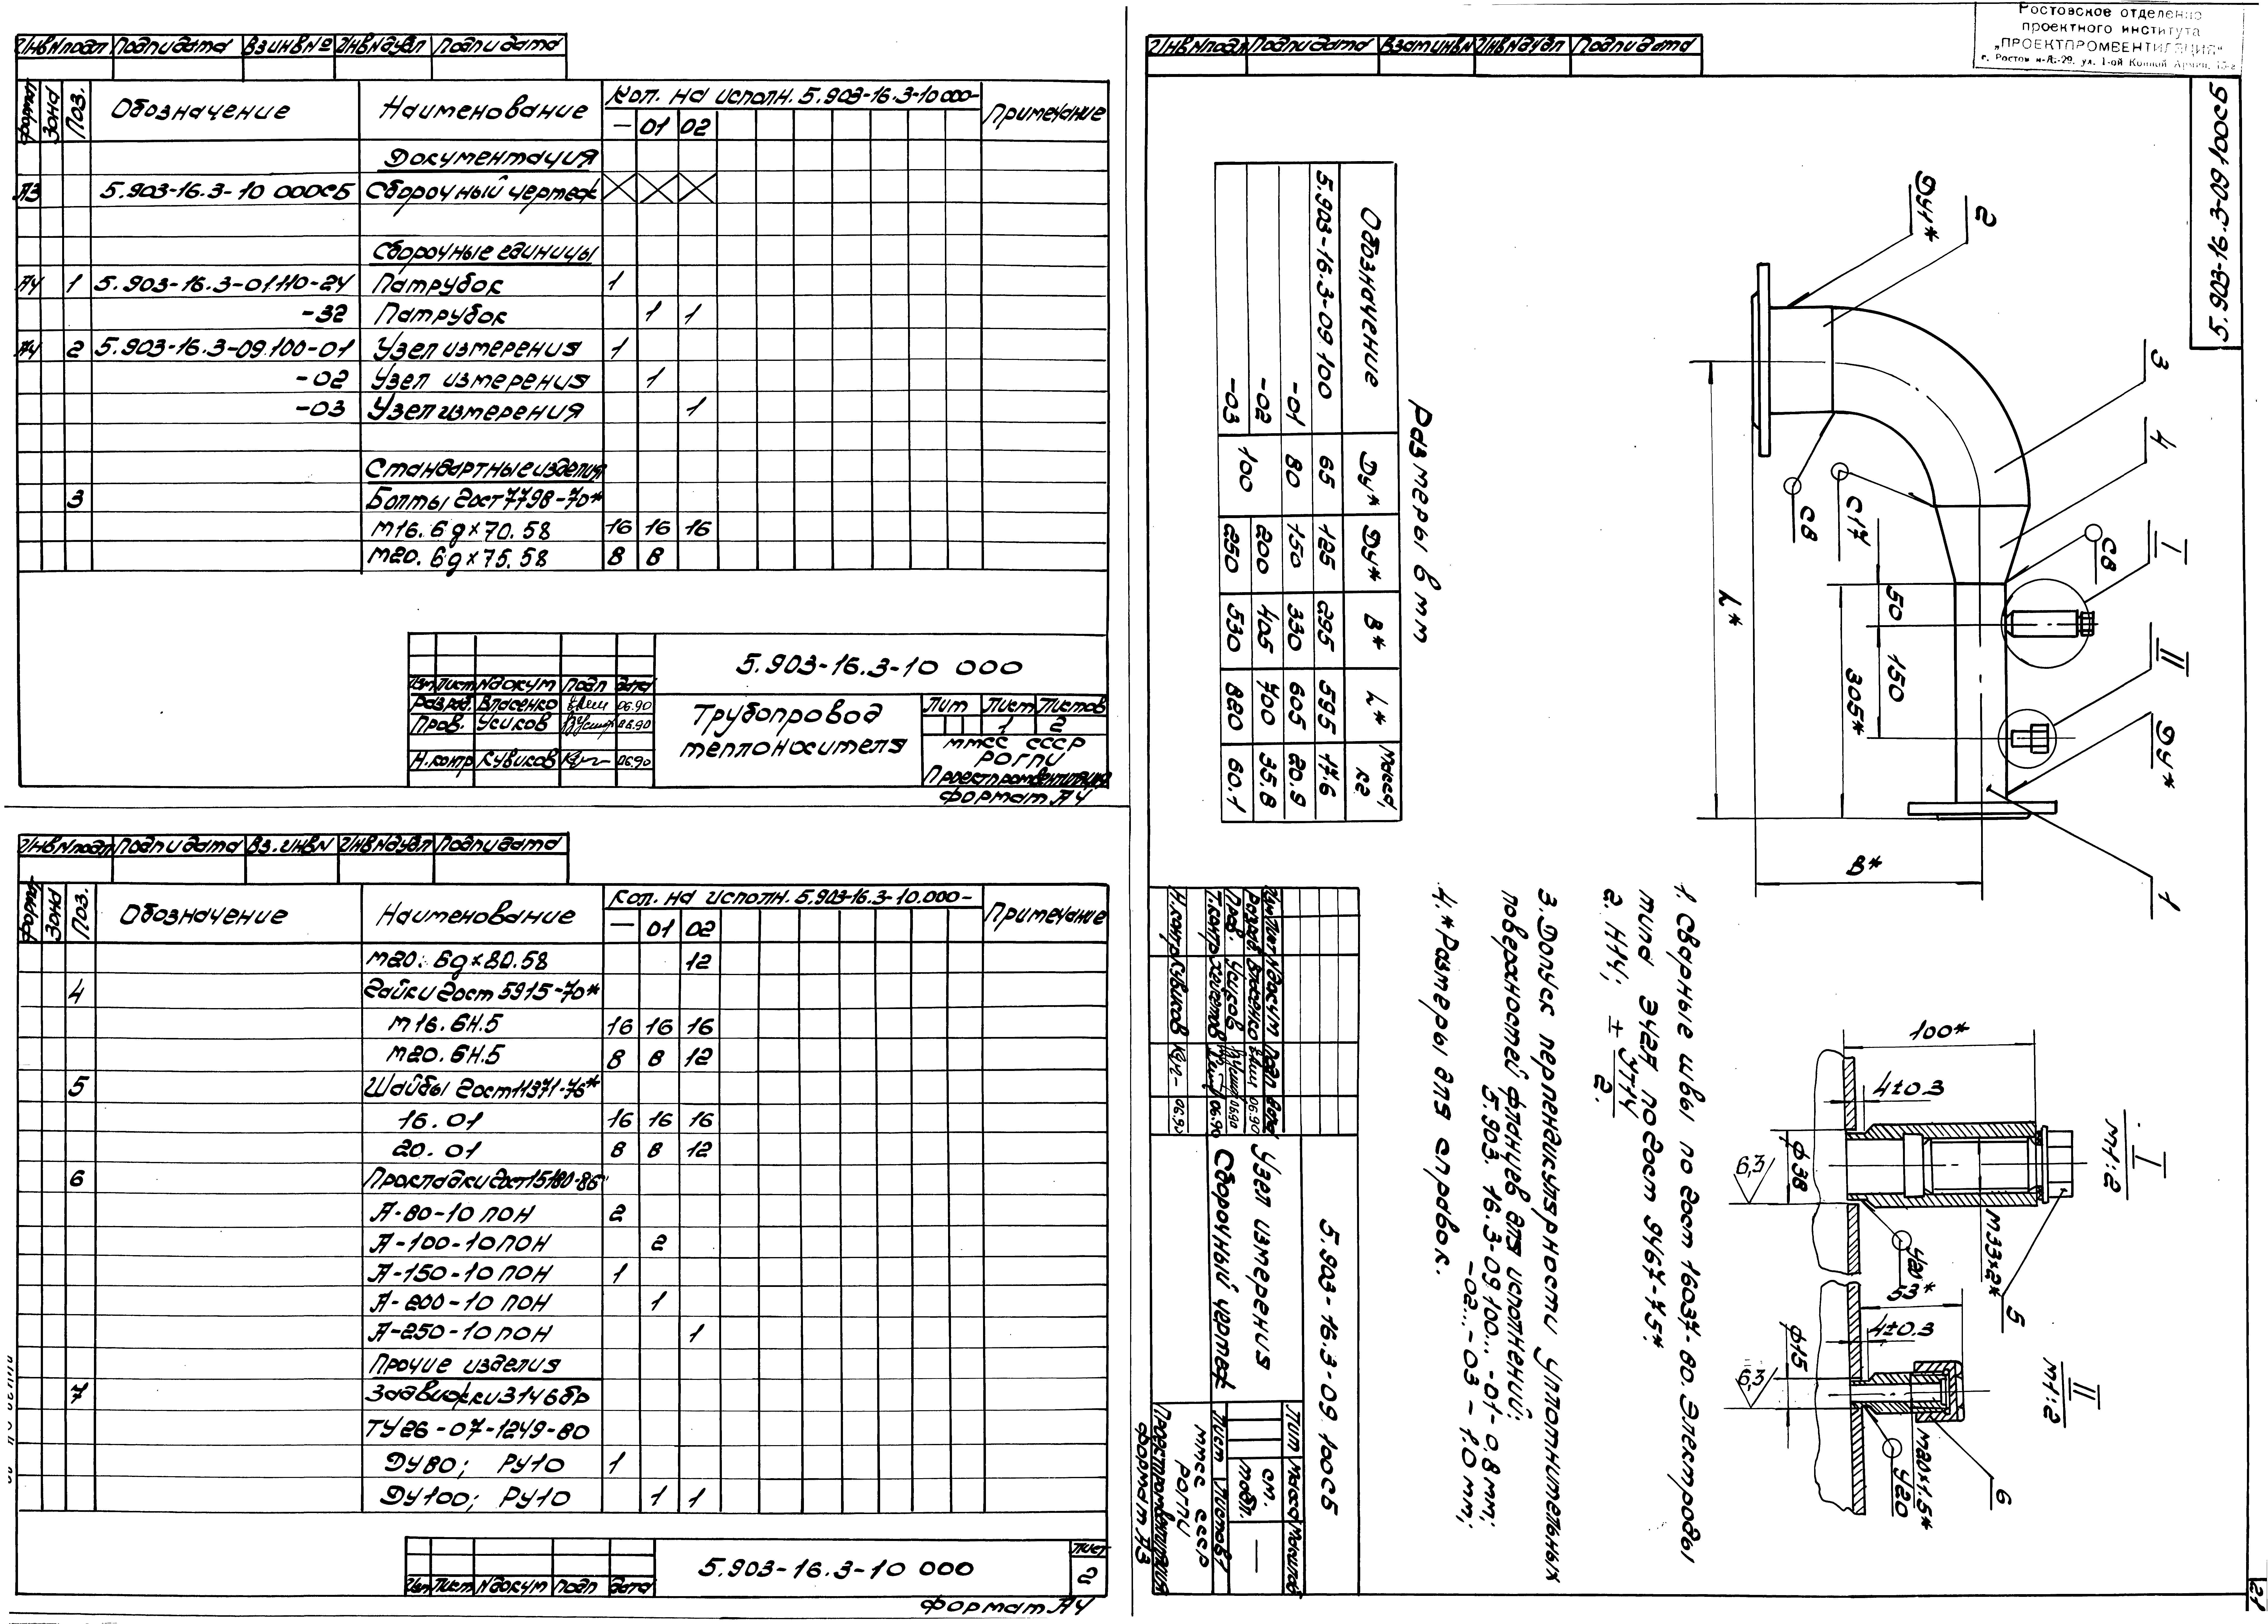 Инв№подл Подп и дата Вз инв№ Инв№дубл Подп и дата
Формат Зона Поз. Обозначение Наименование Кол. на исполн. 5.903-16.3-10 000- Примечание
— 01 02
Документация
А3 5.903-16.3-10 000СБ Сборочный чертеж
Сборочные единицы
А4 1 5.903-16.3-01.110-24 Патрубок 1
-32 Патрубок 1 1
А4 2 5.903-16.3-09.100-01 Узел измерения 1
-02 Узел измерения 1
-03 Узел измерения 1
Стандартные изделия
3 Болты Гост 7798-70*
М16.6g×70.58 16 16 16
М20.6g×75.58 8 8
5.903-16.3-10 000
Изм Лист №докум Подп Дата
Разраб. Власенко 06.90
Пров. Усиков 06.90
Н.контр Кувиков 06.90
Трубопровод
теплоносителя
Лит Лист Листов
1 2
ММСС СССР
РОГПИ
Проектпромвентиляция
Формат А4
Инв№подл Подп и дата Вз.инв№ Инв№дубл Подп и дата
Формат Зона Поз. Обозначение Наименование Кол. на исполн. 5.903-16.3-10.000- Примечание
— 01 02
М20.6g×80.58 12
4 Гайки Гост 5915-70*
М16.6Н.5 16 16 16
М20.6Н.5 8 8 12
5 Шайбы Гост 11371-76*
16.01 16 16 16
20.01 8 8 12
6 Прокладки Гост 15180-86
А-80-10 ПОН 2
А-100-10 ПОН 2
А-150-10 ПОН 1
А-200-10 ПОН 1
А-250-10 ПОН 1
Прочие изделия
7 Задвижки 31ч6бр
ТУ26-07-1249-80
Ду80; Ру10 1
Ду100; Ру10 1 1
5.903-16.3-10 000
Лист
2
Изм Лист №докум Подп Дата
Формат А4
Инв№подл Подп и дата Взам инв№ Инв№дубл Подп и дата
Ростовское отделение
проектного института
„ПРОЕКТПРОМВЕНТИЛЯЦИЯ"
г. Ростов н-Д-29, ул. 1-ой Конной Армии,
5.903-16.3-09.100СБ
Ду1*
2
3
4
С8
С17
С8
I
II
50
150
305*
L*
Ду*
В*
1
Размеры в мм
Обозначение Ду* Ду* В* L* Масса, кг
5.903-16.3-09.100 65 125 295 595 17.6
-01 80 150 330 605 20.9
-02 100 200 405 700 35.8
-03 250 530 880 60.1
I
М1:2
100*
4±0.3
ф38
6,3
М33×2*
У20
5
II
М1:2
53*
4±0.3
ф15
6,3
М20×1.5*
У20
6
1. Сварные швы по Гост 16037-80. Электроды
типа Э42А по Гост 9467-75*.
2. Н14; ± УТ14/2.
3. Допуск перпендикулярности уплотнительных
поверхностей фланцев для исполнений:
5.903.16.3-09.100...-01-0.8 мм;
-02...-03 - 1.0 мм;
4. *Размеры для справок.
5.903-16.3-09.100СБ
Изм Лист №докум Подп Дата
Разраб. Власенко 06.90
Пров. Усиков 06.90
Т.контр 06.90
Н.контр Кувиков 06.90
Узел измерения
Сборочный чертеж
Лит Масса Масштаб
см. табл. —
Лист Листов 1
ММСС СССР
РОГПИ
Проектпромвентиляция
Формат А3
21